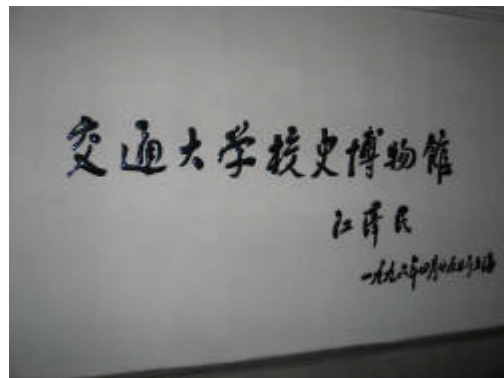 交通大学校史博物馆
江泽民
一九九六年四月廿五日于上海